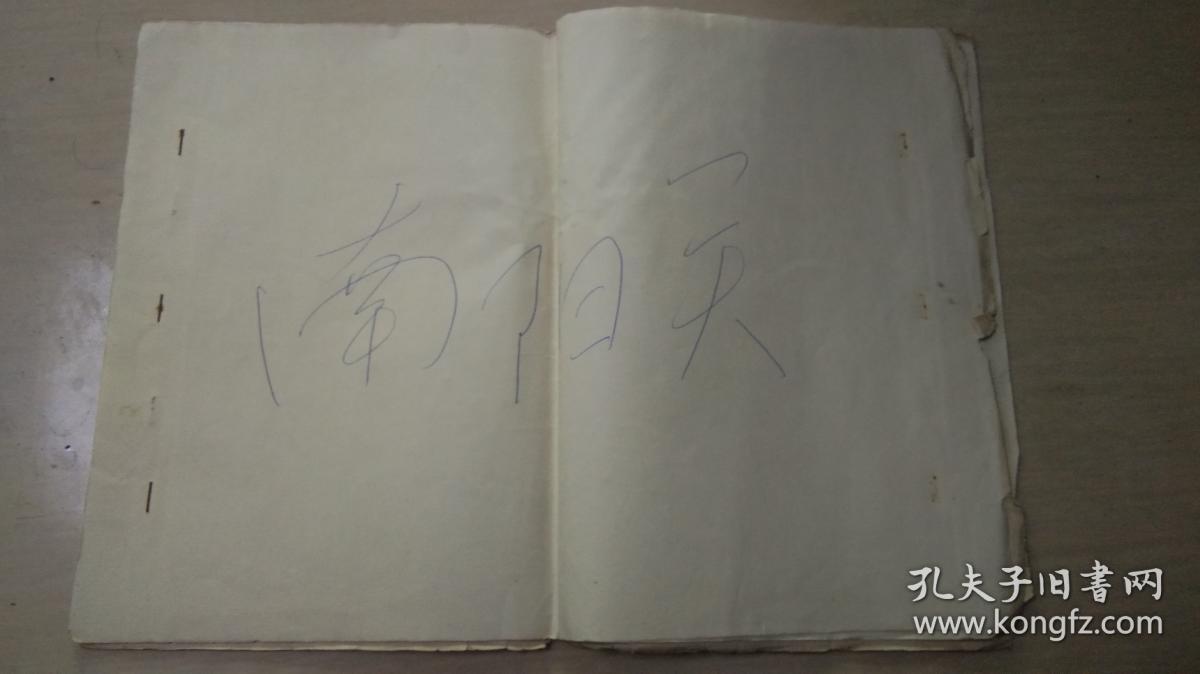 南阳关
孔夫子旧书网
www.kongfz.com